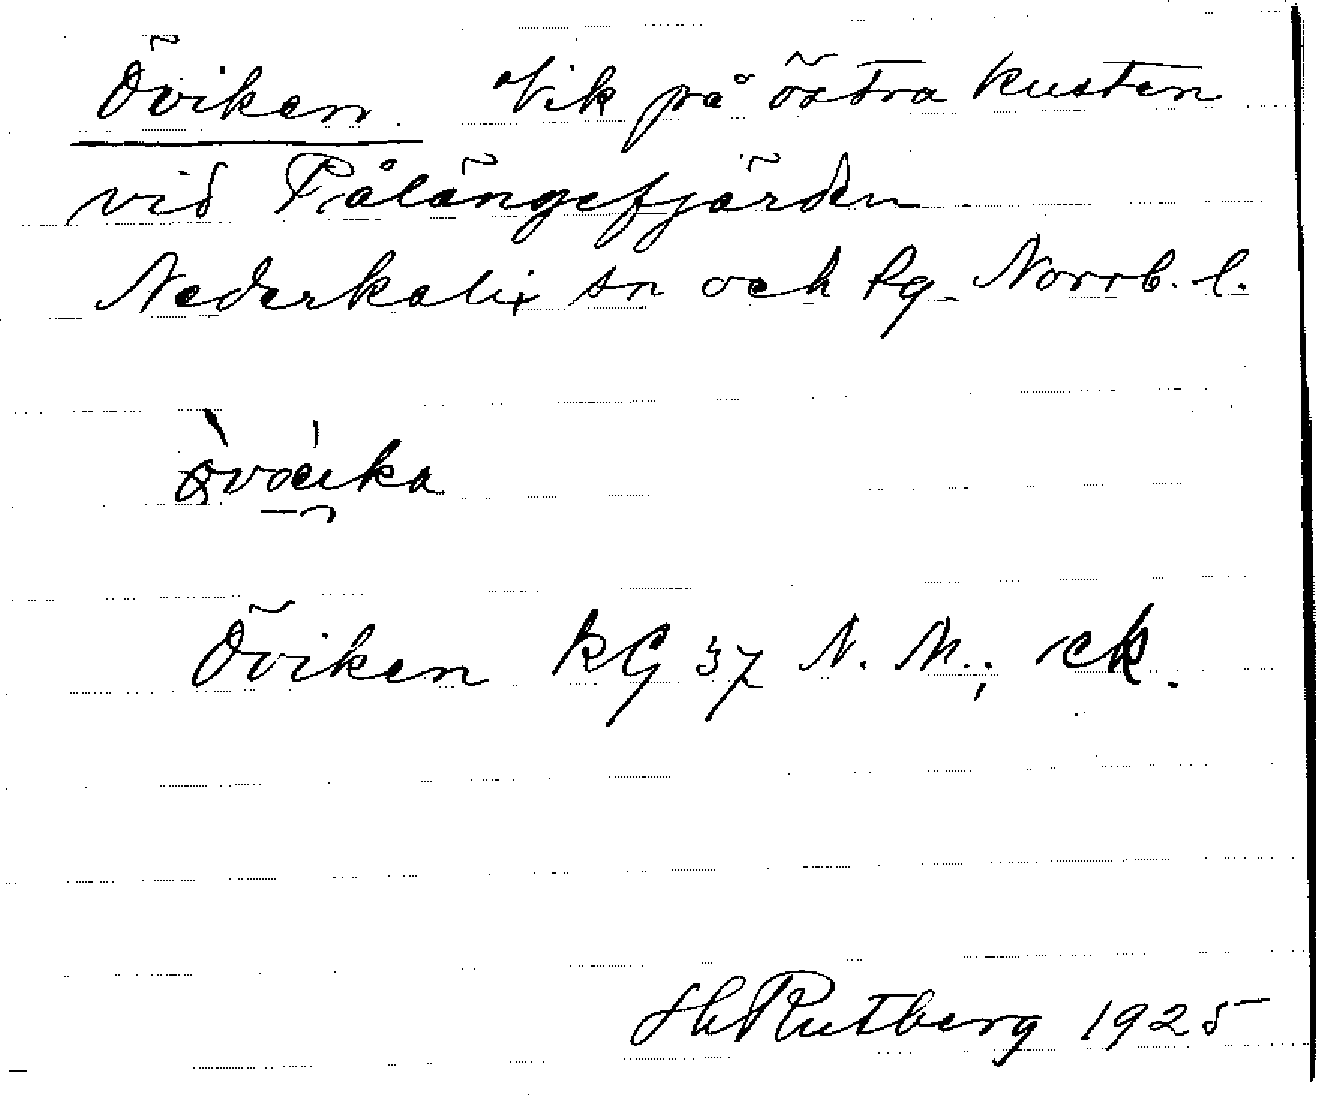 Öviken. Vik på östra kusten
vid Pålängefjärden.
Nederkalix sn och tg. Norrb. l.
Öviken KG 37 N. N.; ck.
H Rutberg 1925